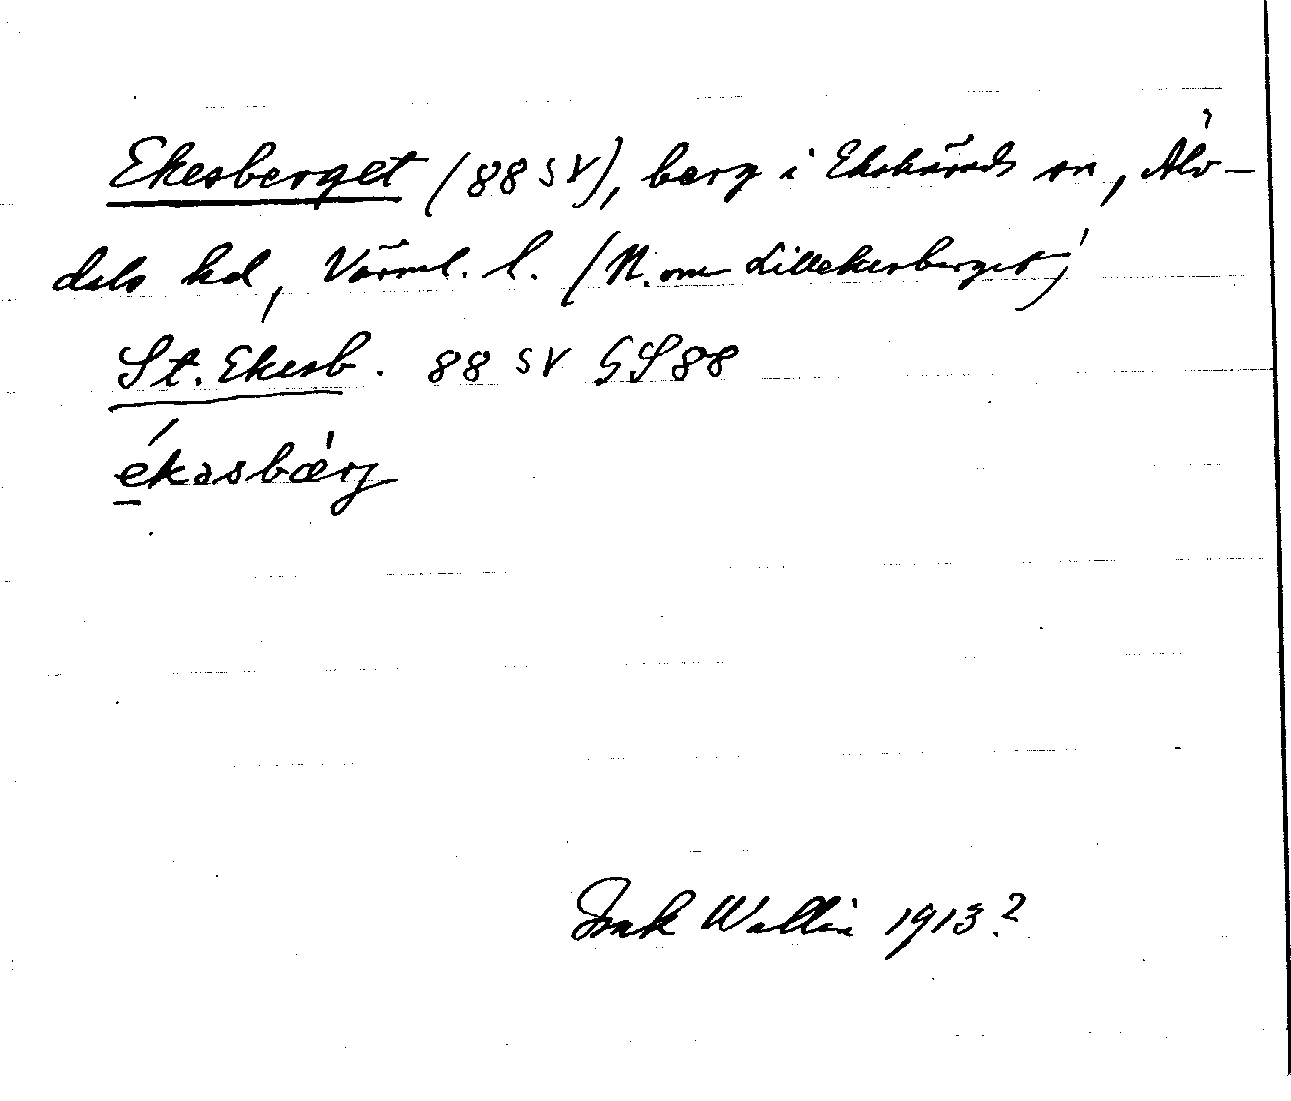 Ekesberget (88 SV), berg i Ekshärads sn, Älv-
dals hd, Värml. l. (N. om Lillekesberget)
St. Ekesb. 88 SV GS 88
ékəsbær̀j
Isak Wallin 1913?